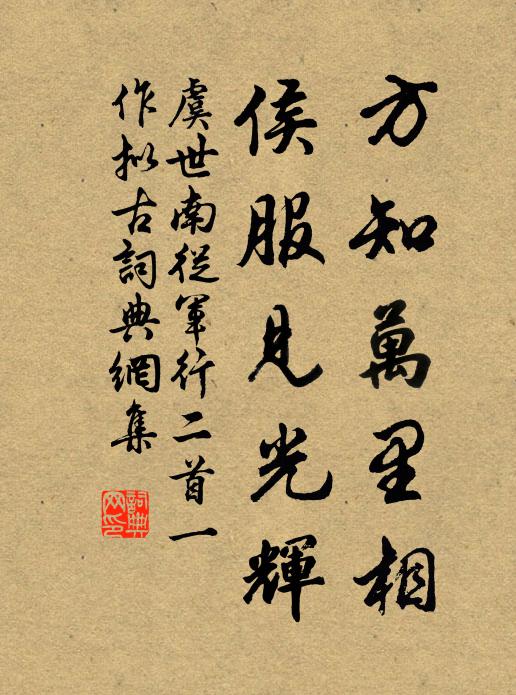 方知萬里相
侯服見光輝
虞世南從軍行二首一
作拟古詞典網集
詞典網印